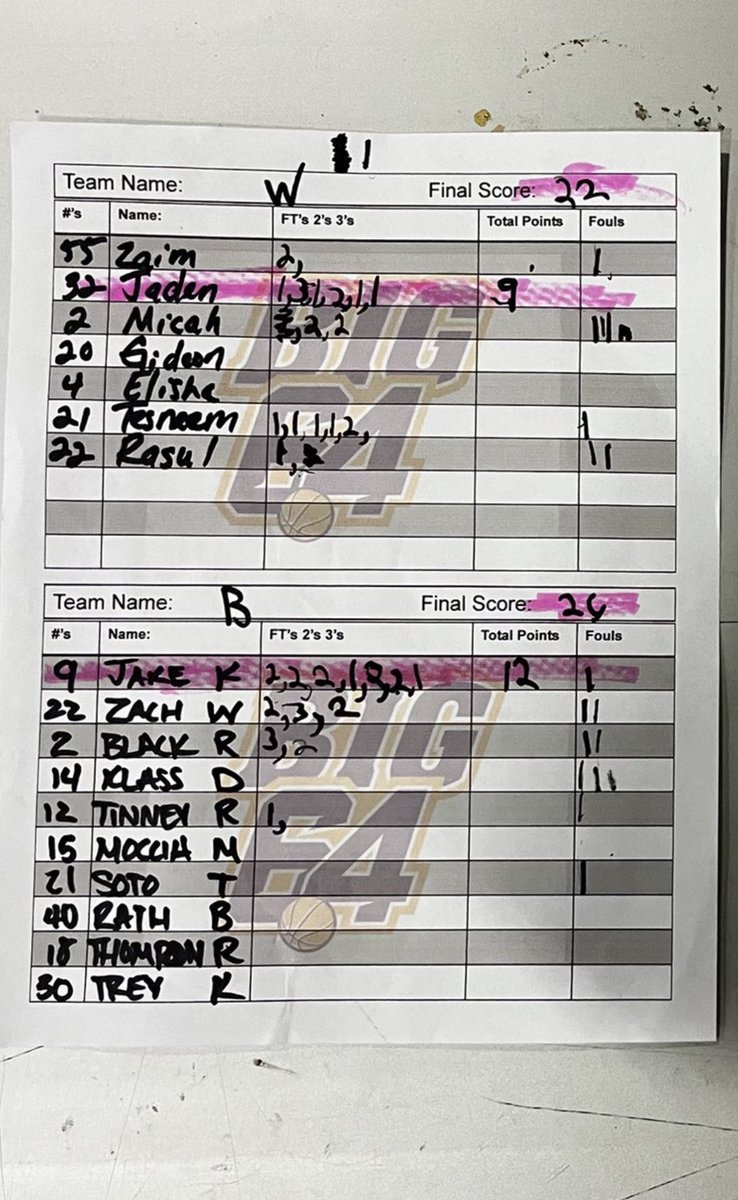 1
Team Name: W Final Score: 22
#'s Name: FT's 2's 3's Total Points Fouls
55 Zaim 2, 1
32 Jaden 1,3,1,2,1,1 9
2 Micah 2,2
20 Gideon
4 Elisha
21 Tesneem 1,1,1,1,2, 1
22 Rasul 1, 11
BIG
64
Team Name: B Final Score:
#'s Name: FT's 2's 3's Total Points Fouls
9 JAKE K 2,2,2,1, 2,1 12 1
22 ZACH W 2,3,2 11
2 BLACK R 3,2 11
14 KLASS D 111
12 TINNEY R 1, 1
15 MOCCIA M
21 SOTO T 1
40 RATH B
18 R
30 TREY K
BIG
64